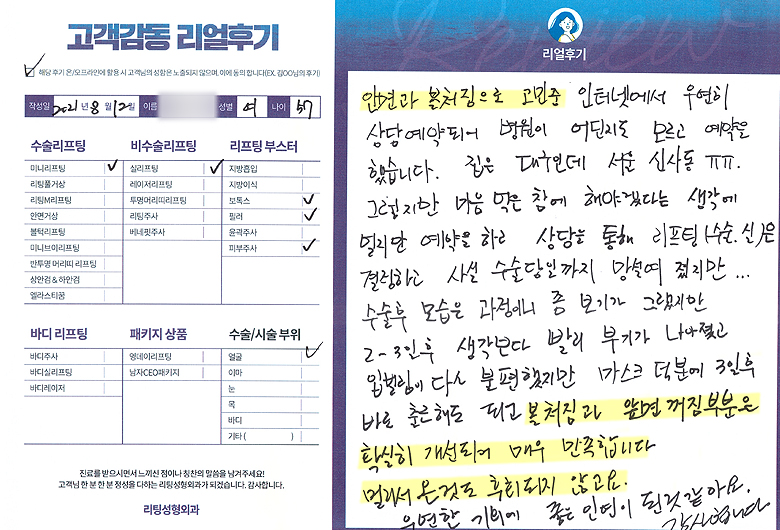 고객감동 리얼후기
해당 후기 온/오프라인에 활용 시 고객님의 성함은 노출되지 않으며, 이에 동의 합니다(EX. 김OO님의 후기)
작성일 2021년 8월 12일 이름 성별 여 나이 57
수술리프팅
미니리프팅
리팅풀거상
리팅M리프팅
안면거상
볼턱리프팅
미니브이리프팅
반투명 머리띠 리프팅
상안검 & 하안검
엘라스티꿈
비수술리프팅
실리프팅
레이저리프팅
투명머리띠리프팅
리팅주사
버네핏주사
리프팅 부스터
지방흡입
지방이식
보톡스
필러
윤곽주사
피부주사
바디 리프팅
바디주사
바디실리프팅
바디레이저
패키지 상품
영네이리프팅
남자CEO패키지
수술/시술 부위
얼굴
이마
눈
목
바디
기타 ( )
진료를 받으시면서 느끼신 점이나 칭찬의 말씀을 남겨주세요!
고객님 한 분 한 분 정성을 다하는 리팅성형외과가 되겠습니다. 감사합니다.
리팅성형외과
Review
리얼후기
안면과 볼처짐으로 고민中 인터넷에서 우연히
상담예약되어 병원이 어딘지도 모르고 예약을
했습니다. 집은 대구인데 서울 신사동 ㅠㅠ.
그렇지만 마음 먹은 참에 해야겠다는 생각에
멀리만 예약을 하고 상담을 통해 리프팅(수술.실)은
결정하고 사실 수술당일까지 망설여 졌지만 ...
수술후 모습은 과정이니 좀 보기가 그랬지만
2-3일후 생각보다 빨리 부기가 나아졌고
입벌림이 다소 불편했지만 마스크 덕분에 3일후
바로 출근해도 되고 볼처짐과 앞면 꺼짐부분은
확실히 개선되어 매우 만족합니다
멀리서 온것도 후회되지 않고요.
우연한 기회에 좋은 인연이 된것 같아요.
감사합니다